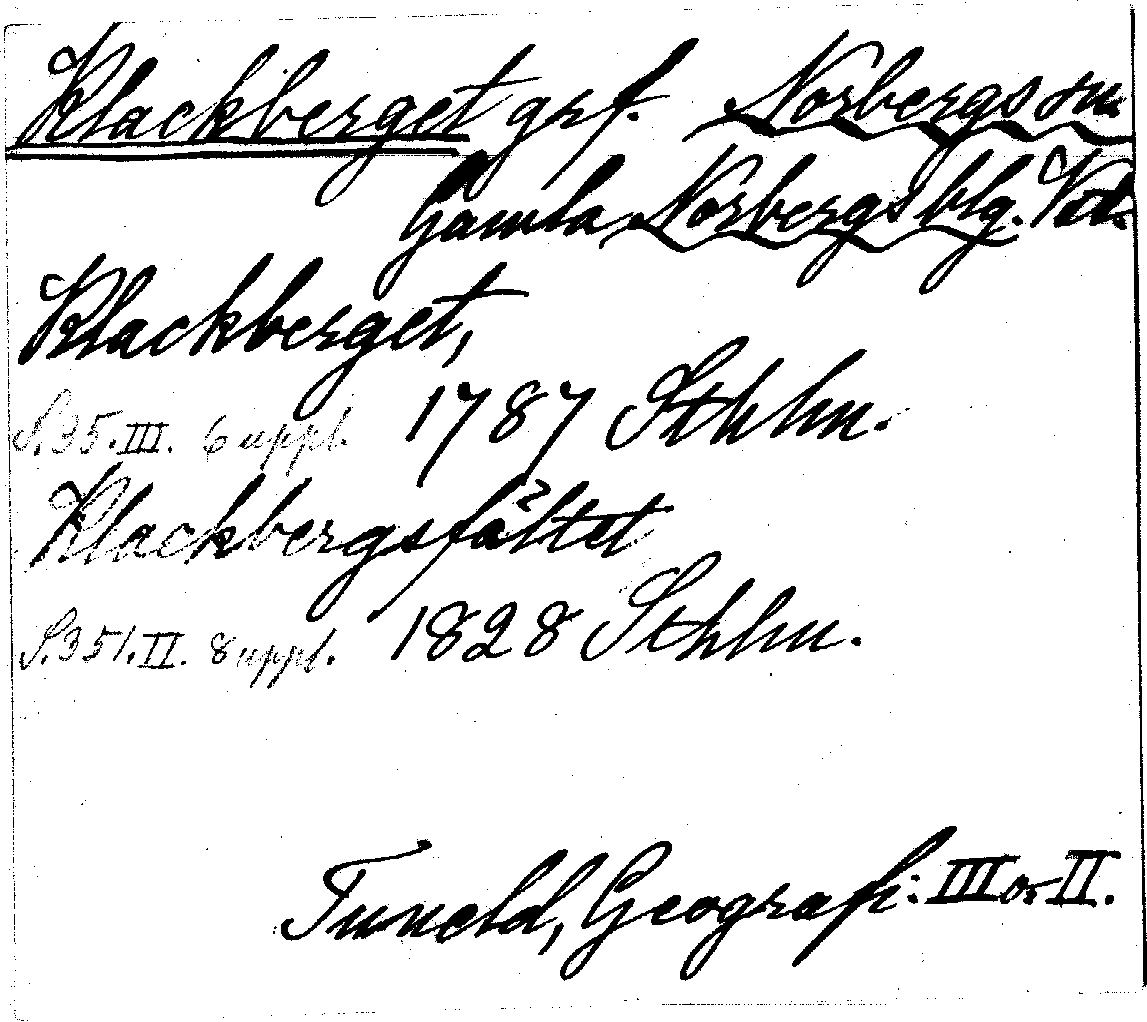 Klackberget grf. Norbergs sn.
Gamla Norbergs blg. Vstm.
Klackberget,
S. 35. III. 6 uppl. 1787 Sthlm.
Klackbergsfältet
S. 351. II. 8 uppl. 1828 Sthlm.
Tuneld, Geografi: III o. II.